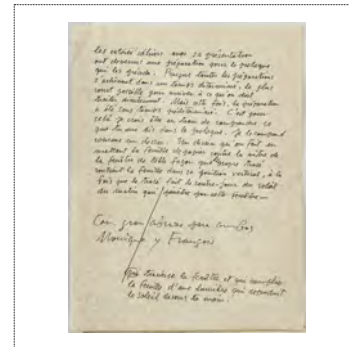 les entrées célèbres avec sa présentation
ont devenus une préparation pour le prologue
qui les précède. Puisque toutes les préparations
s'achèvent dans un temps déterminé, le plus
court possible pour arriver à ce qu'on doit
traiter directement. Mais cette fois, la préparation
a été sans temps prédéterminé. C'est pour
celà je crois être en train de comprendre ce
que tu me dis dans le prologue. Je le comprend
comme un dessin. Un dessin qui on fait en
mettant la feuille de papier contre la vitre de
la fenêtre de telle façon que tracé
contient la feuille dans sa position vertical, à la
fois que le tracé fait le contre-jour du soleil
du matin qui pénètre par cette fenêtre—
Con gran abrazo para ambos
Monique y François
traverse la fenêtre et qui remplie
la feuille d'une lumière qui
le soleil devant la main.